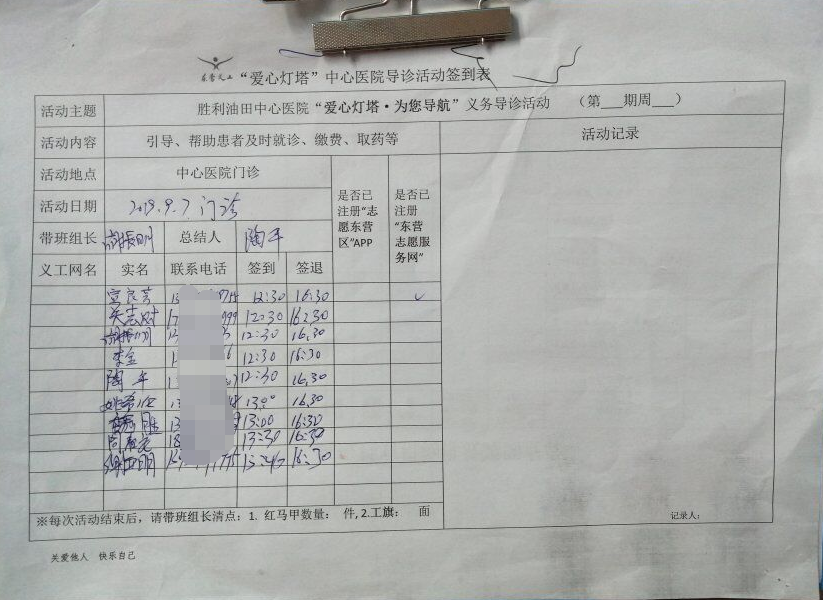 东营义工
“爱心灯塔”中心医院导诊活动签到表
活动主题 胜利油田中心医院“爱心灯塔·为您导航”义务导诊活动 （第___期周___）
活动内容 引导、帮助患者及时就诊、缴费、取药等 活动记录
活动地点 中心医院门诊 是否已注册“志愿东营区”APP 是否已注册“东营志愿服务网”
活动日期 2019.9.7 门诊
带班组长 总结人 陶平
义工网名 实名 联系电话 签到 签退
宫良芳 12:30 16:30 ✓
12:30 16:30
12:30 16.30
李金 12:30 16:30
陶平 12:30 16.30
13.00 16.30
13:00 16:30
13:30 16:30
16:30
※每次活动结束后，请带班组长清点：1. 红马甲数量： 件, 2.工旗： 面
记录人：
关爱他人 快乐自己